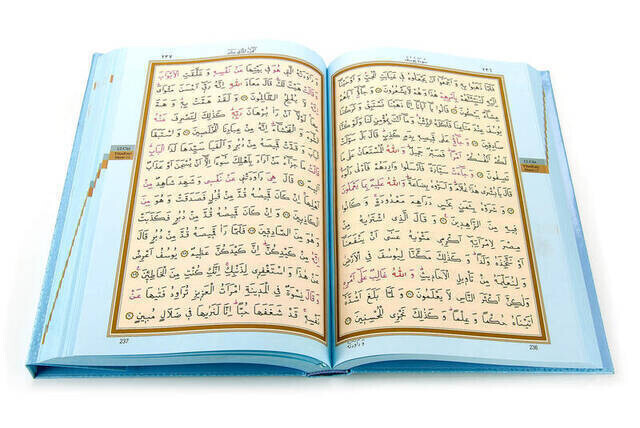 ٢٣٦
فَلَمَّا ذَهَبُوا بِهِ وَاَجْمَعُوا اَنْ يَجْعَلُوهُ فِي غَيَابَتِ الْجُبِّ وَاَوْحَيْنَا
اِلَيْهِ لَتُنَبِّئَنَّهُمْ بِاَمْرِهِمْ هٰذَا وَهُمْ لَا يَشْعُرُونَ وَجَاؤُ اَبَاهُمْ
عِشَاءً يَبْكُونَ قَالُوا يَا اَبَانَا اِنَّا ذَهَبْنَا نَسْتَبِقُ وَتَرَكْنَا
يُوسُفَ عِنْدَ مَتَاعِنَا فَاَكَلَهُ الذِّئْبُ وَمَا اَنْتَ بِمُؤْمِنٍ لَنَا وَلَوْ كُنَّا
صَادِقِينَ وَجَاؤُ عَلٰى قَمِيصِهِ بِدَمٍ كَذِبٍ قَالَ بَلْ سَوَّلَتْ لَكُمْ
اَنْفُسُكُمْ اَمْرًا فَصَبْرٌ جَمِيلٌ وَاللّٰهُ الْمُسْتَعَانُ عَلٰى مَا تَصِفُونَ
وَجَاءَتْ سَيَّارَةٌ فَاَرْسَلُوا وَارِدَهُمْ فَاَدْلٰى دَلْوَهُ
قَالَ يَا بُشْرٰى هٰذَا غُلَامٌ وَاَسَرُّوهُ بِضَاعَةً وَاللّٰهُ عَلِيمٌ بِمَا يَعْمَلُونَ
وَشَرَوْهُ بِثَمَنٍ بَخْسٍ دَرَاهِمَ مَعْدُودَةٍ وَكَانُوا فِيهِ
مِنَ الزَّاهِدِينَ وَقَالَ الَّذِي اشْتَرٰيهُ مِنْ
مِصْرَ لِامْرَاَتِهِ اَكْرِمِي مَثْوٰيهُ عَسٰى اَنْ يَنْفَعَنَا
اَوْ نَتَّخِذَهُ وَلَدًا وَكَذٰلِكَ مَكَّنَّا لِيُوسُفَ فِي الْاَرْضِ
وَلِنُعَلِّمَهُ مِنْ تَأْوِيلِ الْاَحَادِيثِ وَاللّٰهُ غَالِبٌ عَلٰى اَمْرِهِ
وَلٰكِنَّ اَكْثَرَ النَّاسِ لَا يَعْلَمُونَ وَلَمَّا بَلَغَ اَشُدَّهُ
اٰتَيْنَاهُ حُكْمًا وَعِلْمًا وَكَذٰلِكَ نَجْزِي الْمُحْسِنِينَ
وَرَاوَدَتْهُ
236
٢٣٧
وَرَاوَدَتْهُ الَّتِي هُوَ فِي بَيْتِهَا عَنْ نَفْسِهِ وَغَلَّقَتِ الْاَبْوَابَ
وَقَالَتْ هَيْتَ لَكَ قَالَ مَعَاذَ اللّٰهِ اِنَّهُ رَبِّي اَحْسَنَ مَثْوَايَ
اِنَّهُ لَا يُفْلِحُ الظَّالِمُونَ وَلَقَدْ هَمَّتْ بِهِ وَهَمَّ
بِهَا لَوْلَا اَنْ رَاٰ بُرْهَانَ رَبِّهِ كَذٰلِكَ لِنَصْرِفَ عَنْهُ
السُّوءَ وَالْفَحْشَاءَ اِنَّهُ مِنْ عِبَادِنَا الْمُخْلَصِينَ وَاسْتَبَقَا
الْبَابَ وَقَدَّتْ قَمِيصَهُ مِنْ دُبُرٍ وَاَلْفَيَا سَيِّدَهَا لَدَا الْبَابِ
قَالَتْ مَا جَزَاءُ مَنْ اَرَادَ بِاَهْلِكَ سُوءًا اِلَّا اَنْ يُسْجَنَ اَوْ عَذَابٌ
اَلِيمٌ قَالَ هِيَ رَاوَدَتْنِي عَنْ نَفْسِي وَشَهِدَ شَاهِدٌ مِنْ
اَهْلِهَا اِنْ كَانَ قَمِيصُهُ قُدَّ مِنْ قُبُلٍ فَصَدَقَتْ وَهُوَ مِنَ
الْكَاذِبِينَ وَاِنْ كَانَ قَمِيصُهُ قُدَّ مِنْ دُبُرٍ فَكَذَبَتْ
وَهُوَ مِنَ الصَّادِقِينَ فَلَمَّا رَاٰ قَمِيصَهُ قُدَّ مِنْ دُبُرٍ قَالَ
اِنَّهُ مِنْ كَيْدِكُنَّ اِنَّ كَيْدَكُنَّ عَظِيمٌ يُوسُفُ اَعْرِضْ
عَنْ هٰذَا وَاسْتَغْفِرِي لِذَنْبِكِ اِنَّكِ كُنْتِ مِنَ الْخَاطِئِينَ
وَقَالَ نِسْوَةٌ فِي الْمَدِينَةِ امْرَاَتُ الْعَزِيزِ تُرَاوِدُ فَتٰيهَا عَنْ
نَفْسِهِ قَدْ شَغَفَهَا حُبًّا اِنَّا لَنَرٰيهَا فِي ضَلَالٍ مُبِينٍ
237